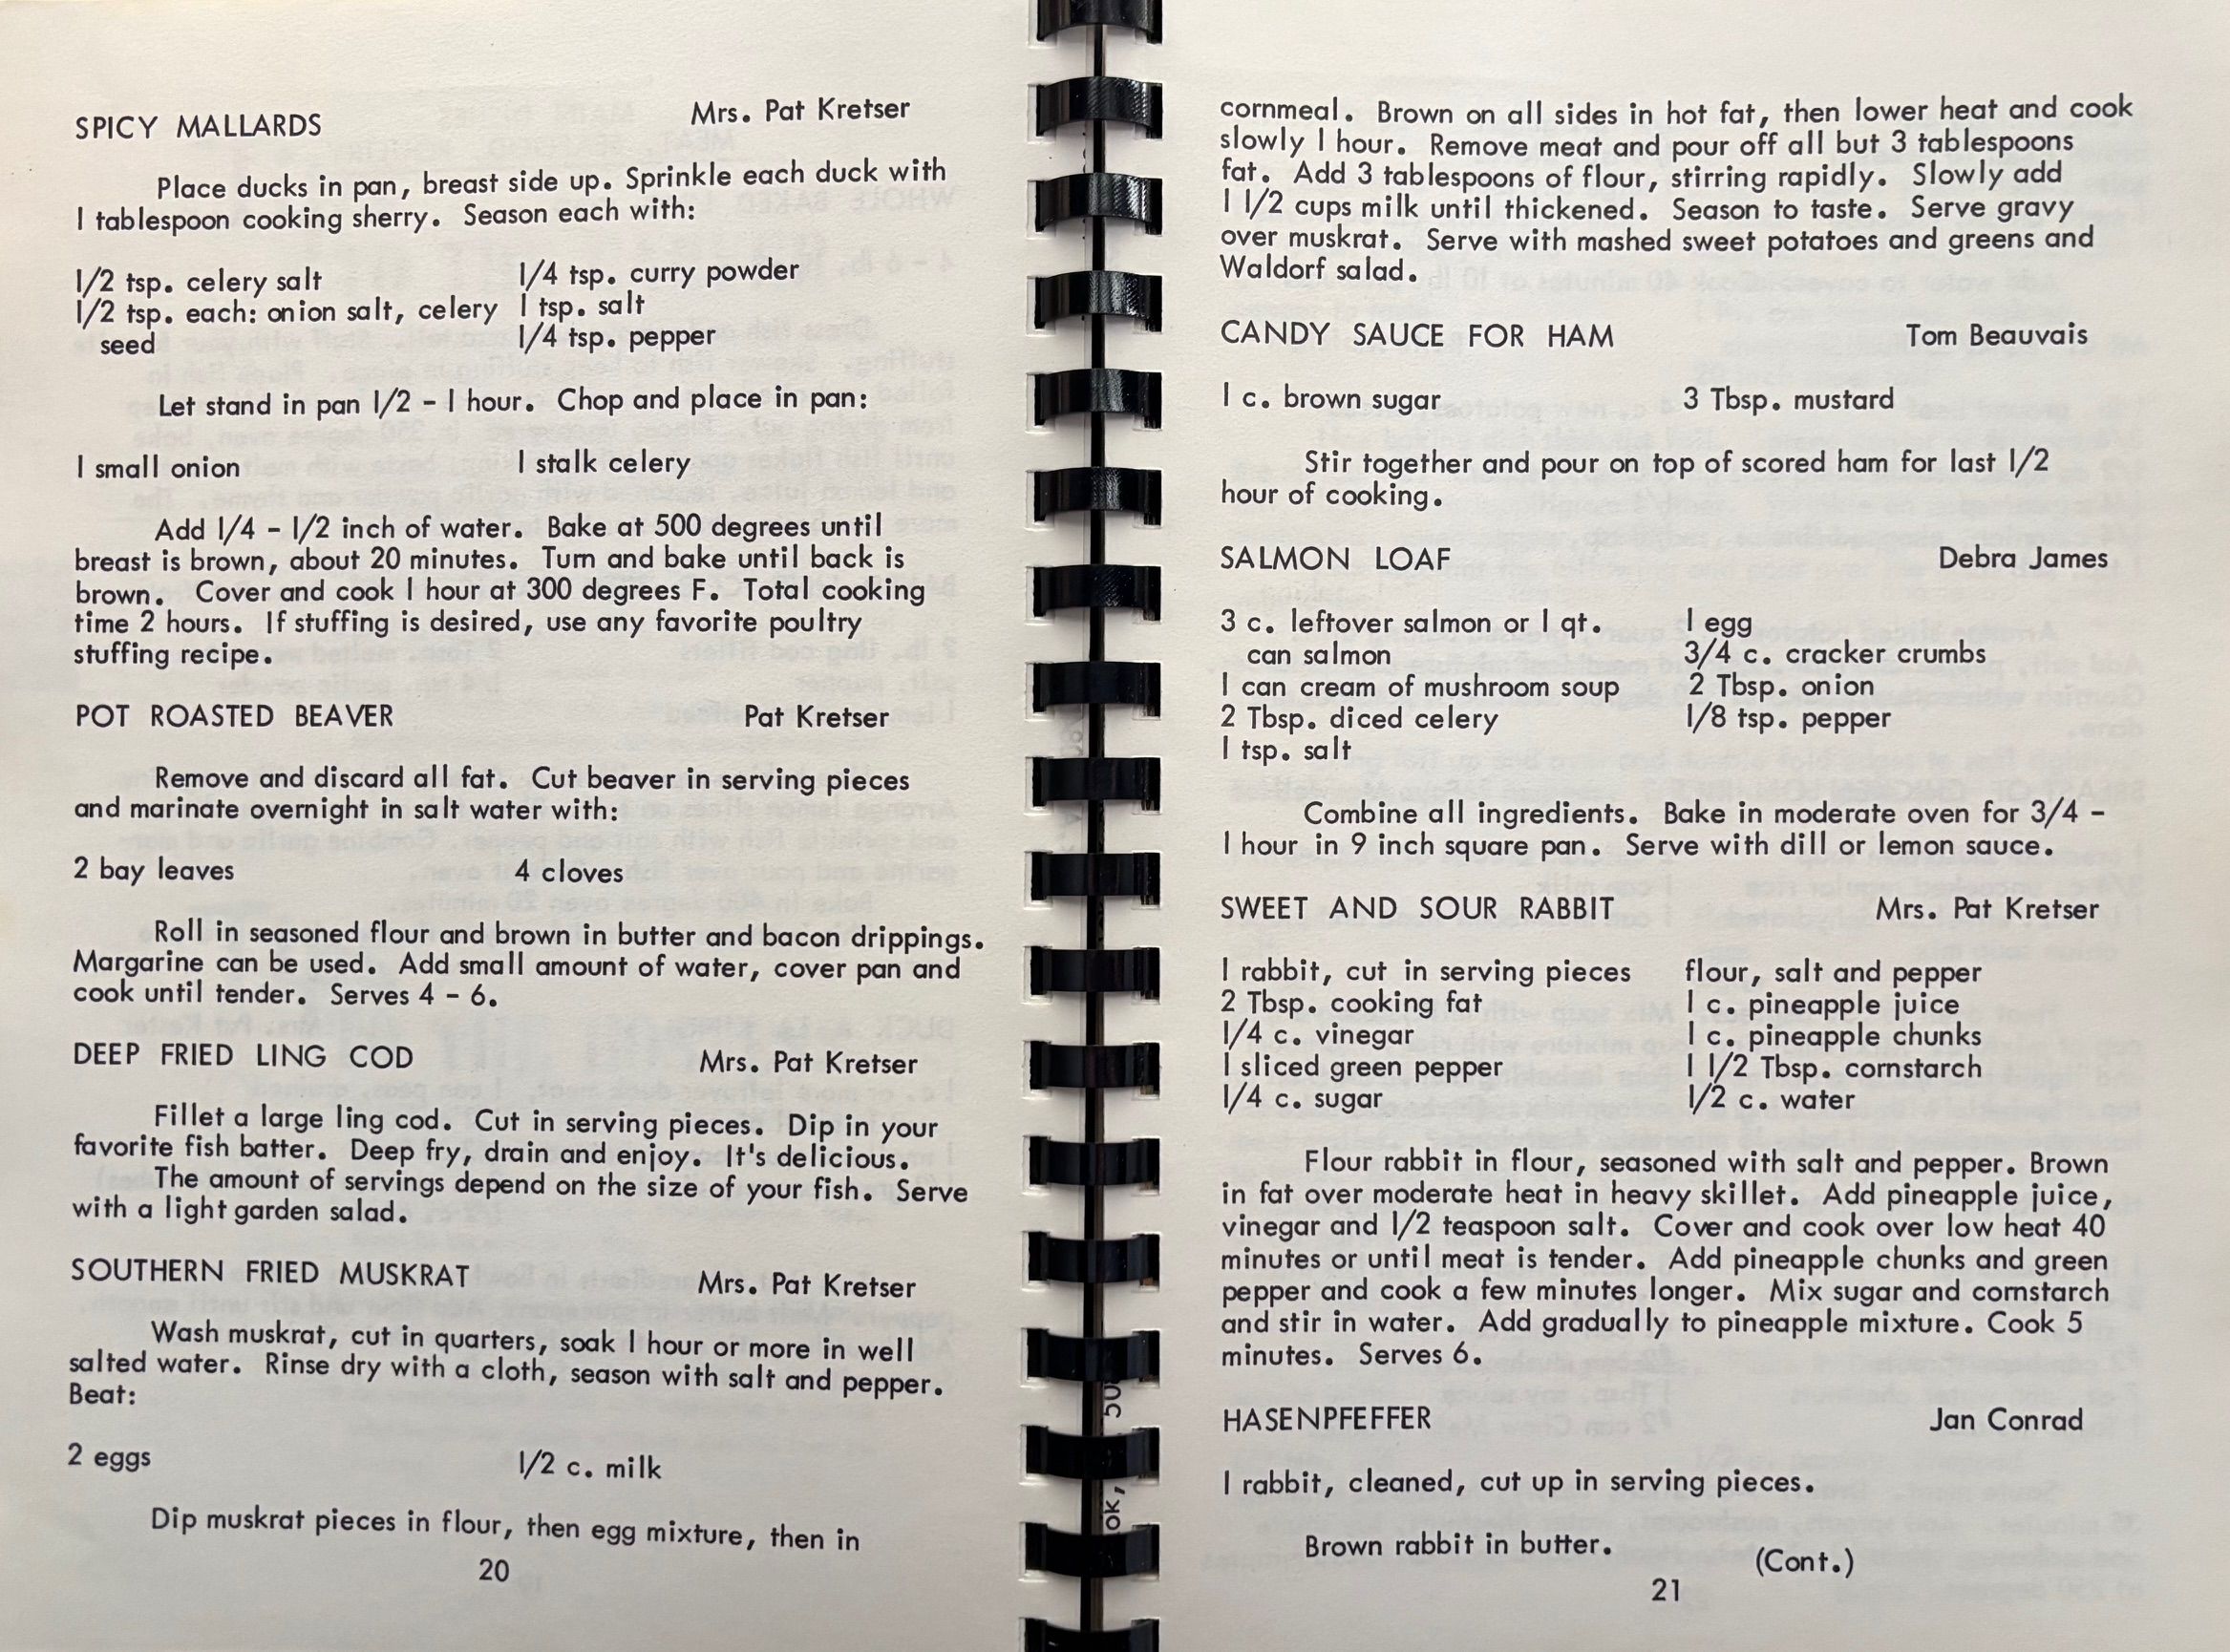 SPICY MALLARDS Mrs. Pat Kretser
Place ducks in pan, breast side up. Sprinkle each duck with
1 tablespoon cooking sherry. Season each with:
1/2 tsp. celery salt 1/4 tsp. curry powder
1/2 tsp. each: onion salt, celery 1 tsp. salt
seed 1/4 tsp. pepper
Let stand in pan 1/2 - 1 hour. Chop and place in pan:
1 small onion 1 stalk celery
Add 1/4 - 1/2 inch of water. Bake at 500 degrees until
breast is brown, about 20 minutes. Turn and bake until back is
brown. Cover and cook 1 hour at 300 degrees F. Total cooking
time 2 hours. If stuffing is desired, use any favorite poultry
stuffing recipe.
POT ROASTED BEAVER Pat Kretser
Remove and discard all fat. Cut beaver in serving pieces
and marinate overnight in salt water with:
2 bay leaves 4 cloves
Roll in seasoned flour and brown in butter and bacon drippings.
Margarine can be used. Add small amount of water, cover pan and
cook until tender. Serves 4 - 6.
DEEP FRIED LING COD Mrs. Pat Kretser
Fillet a large ling cod. Cut in serving pieces. Dip in your
favorite fish batter. Deep fry, drain and enjoy. It's delicious.
The amount of servings depend on the size of your fish. Serve
with a light garden salad.
SOUTHERN FRIED MUSKRAT Mrs. Pat Kretser
Wash muskrat, cut in quarters, soak 1 hour or more in well
salted water. Rinse dry with a cloth, season with salt and pepper.
Beat:
2 eggs 1/2 c. milk
Dip muskrat pieces in flour, then egg mixture, then in
20
cornmeal. Brown on all sides in hot fat, then lower heat and cook
slowly 1 hour. Remove meat and pour off all but 3 tablespoons
fat. Add 3 tablespoons of flour, stirring rapidly. Slowly add
1 1/2 cups milk until thickened. Season to taste. Serve gravy
over muskrat. Serve with mashed sweet potatoes and greens and
Waldorf salad.
CANDY SAUCE FOR HAM Tom Beauvais
1 c. brown sugar 3 Tbsp. mustard
Stir together and pour on top of scored ham for last 1/2
hour of cooking.
SALMON LOAF Debra James
3 c. leftover salmon or 1 qt. 1 egg
can salmon 3/4 c. cracker crumbs
1 can cream of mushroom soup 2 Tbsp. onion
2 Tbsp. diced celery 1/8 tsp. pepper
1 tsp. salt
Combine all ingredients. Bake in moderate oven for 3/4 -
1 hour in 9 inch square pan. Serve with dill or lemon sauce.
SWEET AND SOUR RABBIT Mrs. Pat Kretser
1 rabbit, cut in serving pieces flour, salt and pepper
2 Tbsp. cooking fat 1 c. pineapple juice
1/4 c. vinegar 1 c. pineapple chunks
1 sliced green pepper 1 1/2 Tbsp. cornstarch
1/4 c. sugar 1/2 c. water
Flour rabbit in flour, seasoned with salt and pepper. Brown
in fat over moderate heat in heavy skillet. Add pineapple juice,
vinegar and 1/2 teaspoon salt. Cover and cook over low heat 40
minutes or until meat is tender. Add pineapple chunks and green
pepper and cook a few minutes longer. Mix sugar and cornstarch
and stir in water. Add gradually to pineapple mixture. Cook 5
minutes. Serves 6.
HASENPFEFFER Jan Conrad
1 rabbit, cleaned, cut up in serving pieces.
Brown rabbit in butter.
(Cont.)
21